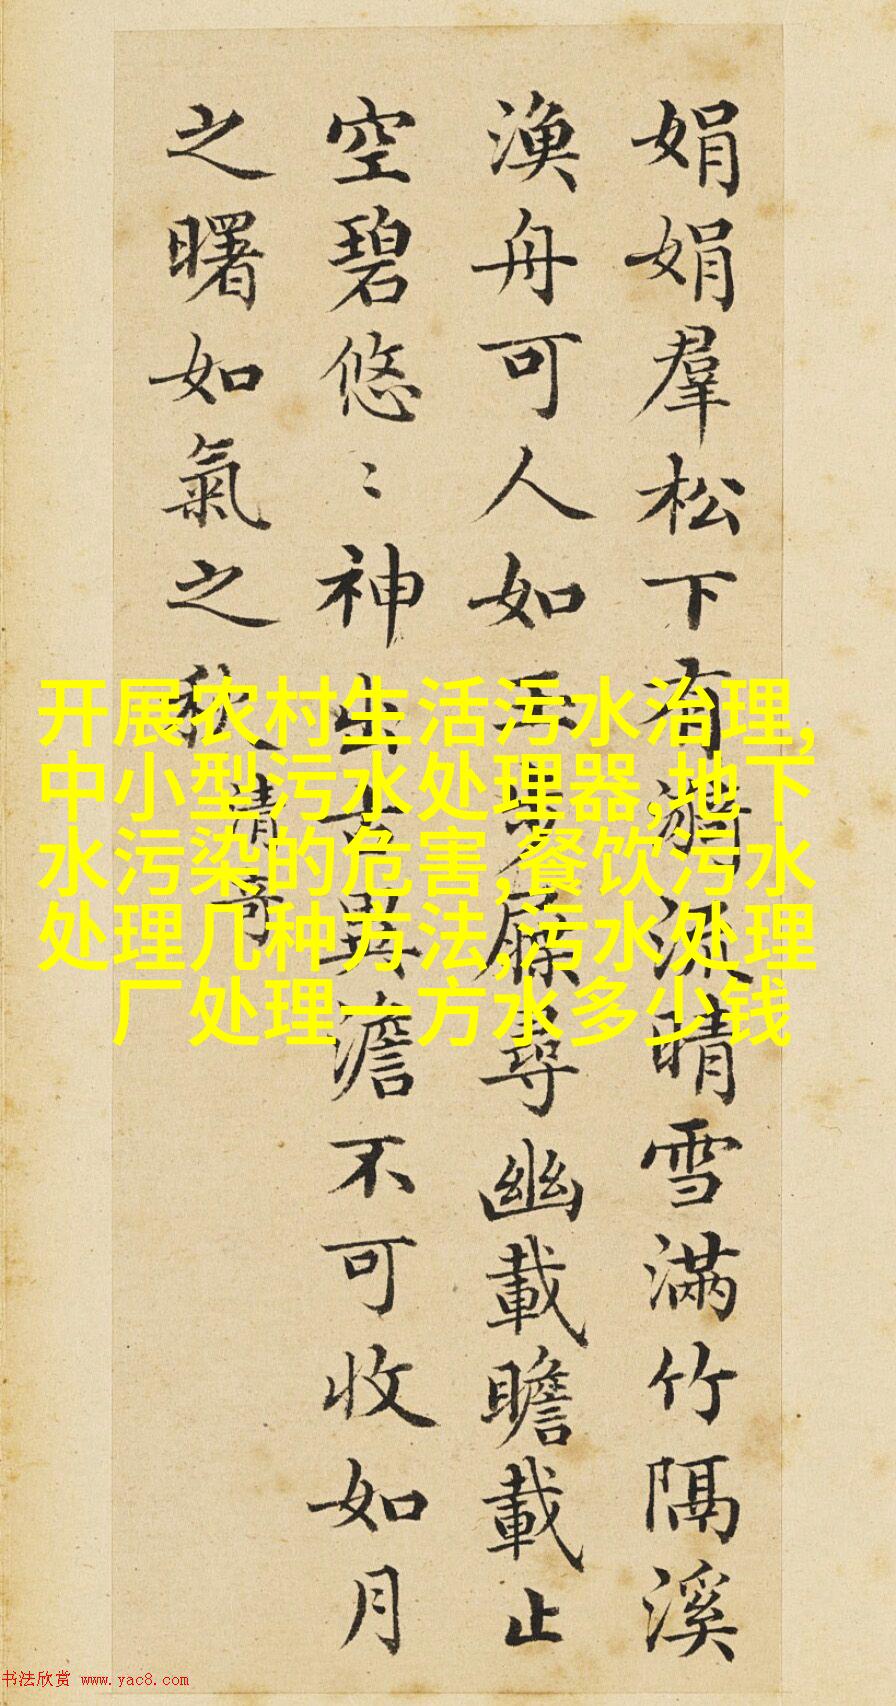 娟娟羣松下有漪流晴雪滿竹隔溪
漁舟可人如玉步屧尋幽載瞻載止
空碧悠〻神出古異澹不可收如月
之曙如氣之秋
清奇
开展农村生活污水治理,
中小型污水处理器,地下
水污染的危害,餐饮污水
处理几种方法,污水处理
厂处理一方水多少钱
书法欣赏 www.yac8.com